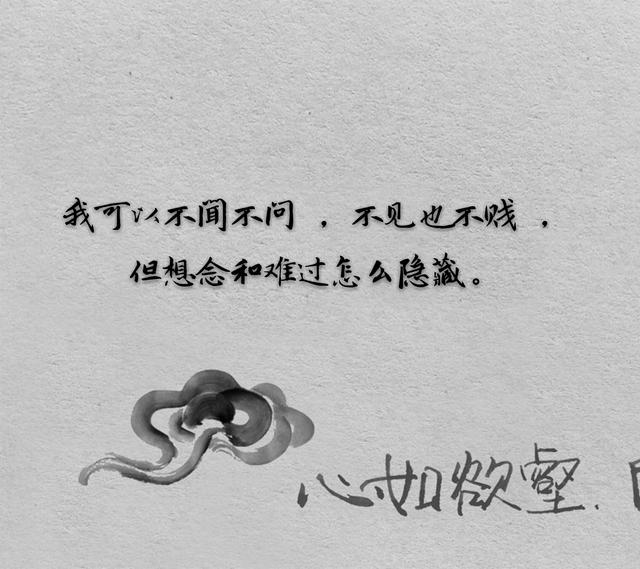 我可以不闻不问 ，不见也不贱 ，
但想念和难过怎么隐藏。
心如欲壑.